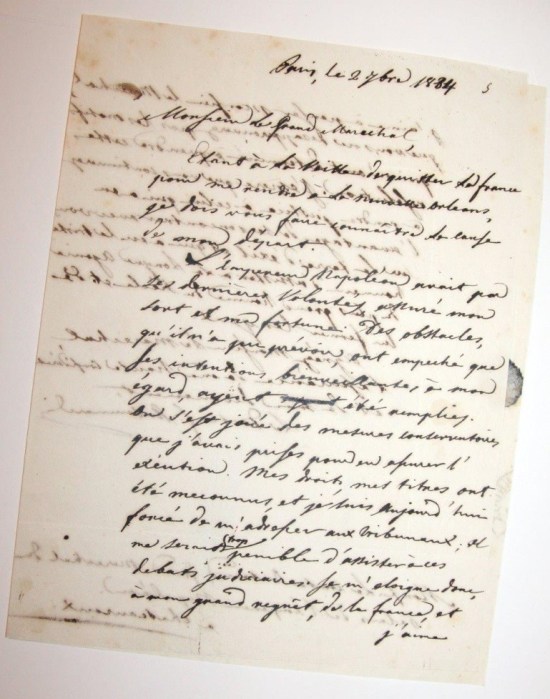 Paris, le 2 7bre 1834
Monsieur le Grand Marechal
Etant à la Veille de quitter la france
pour me rendre à la Nouvelle Orleans,
je dois vous faire connaître la cause
de mon départ.
L'Empereur Napoléon avait par
ses dernières Volontés assuré mon
sort et ma fortune. Des obstacles,
qu'il n'a que prévoir ont empeché que
ses intentions bienveillantes à mon
egard, ayent été remplies.
On s'est joué des mesures conservatoires
que j'avais prises pour en assurer l'
exécution. Mes droits, mes titres ont
été meconnus, et je suis aujourd'hui
forcé de m'adresser aux tribunaux; il
me serait trop penible d'assister à ces
debats judiciaires je m'eloigne donc
a mon grand regrêt, de la france et
j'aime